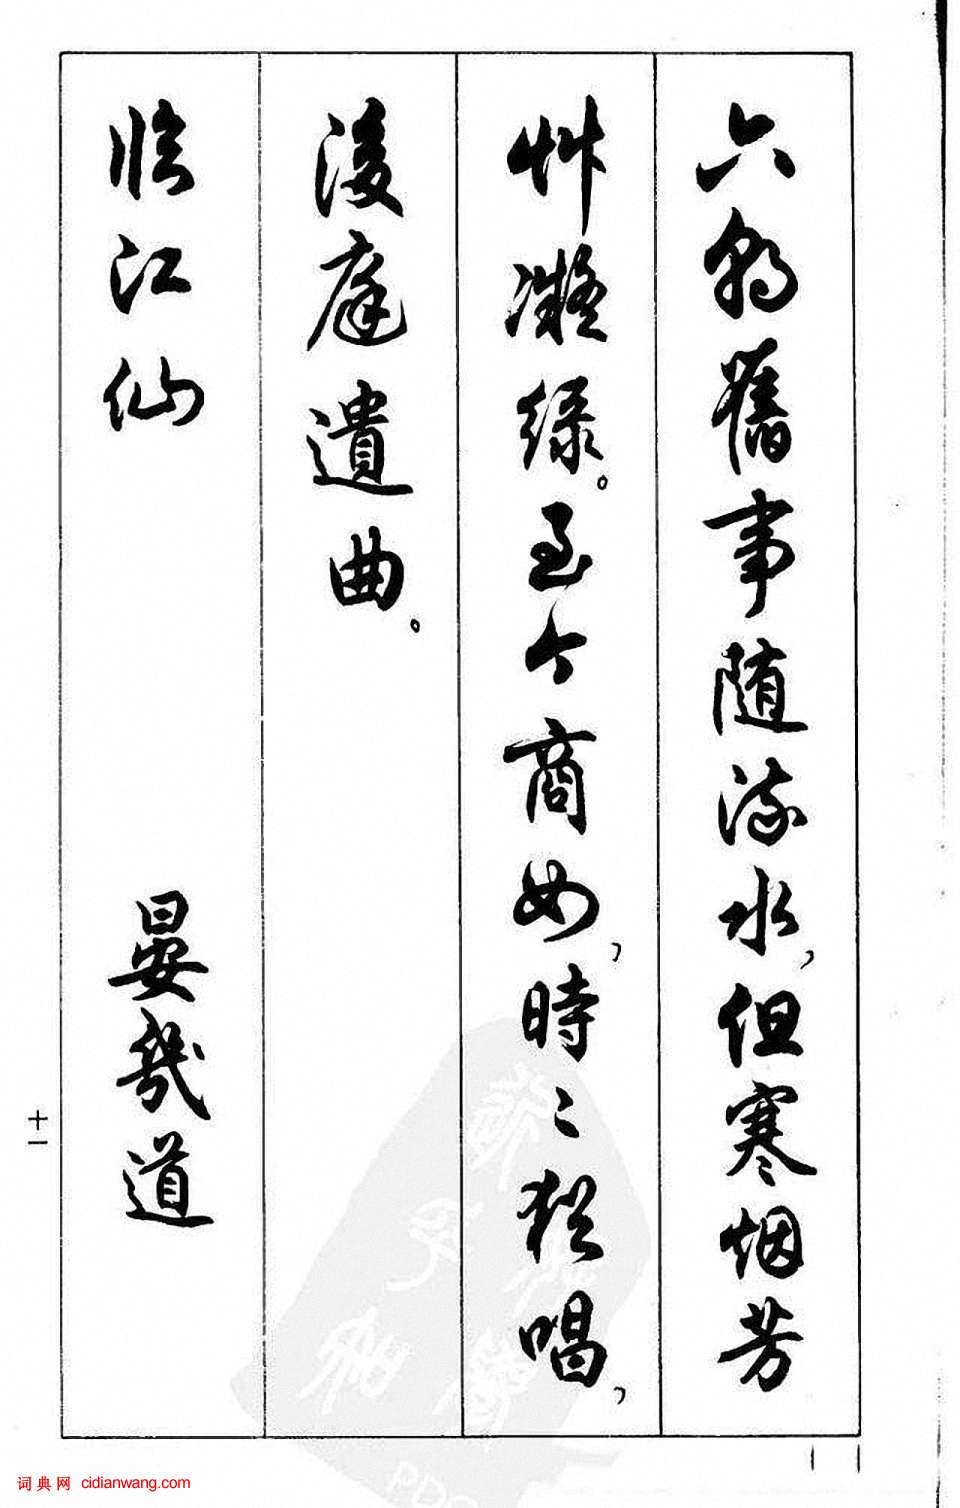 六朝舊事随流水,但寒烟芳
艸凝绿。至今商女,時〻猶唱,
後庭遺曲。
临江仙 晏幾道
十一
词典网 cidianwang.com